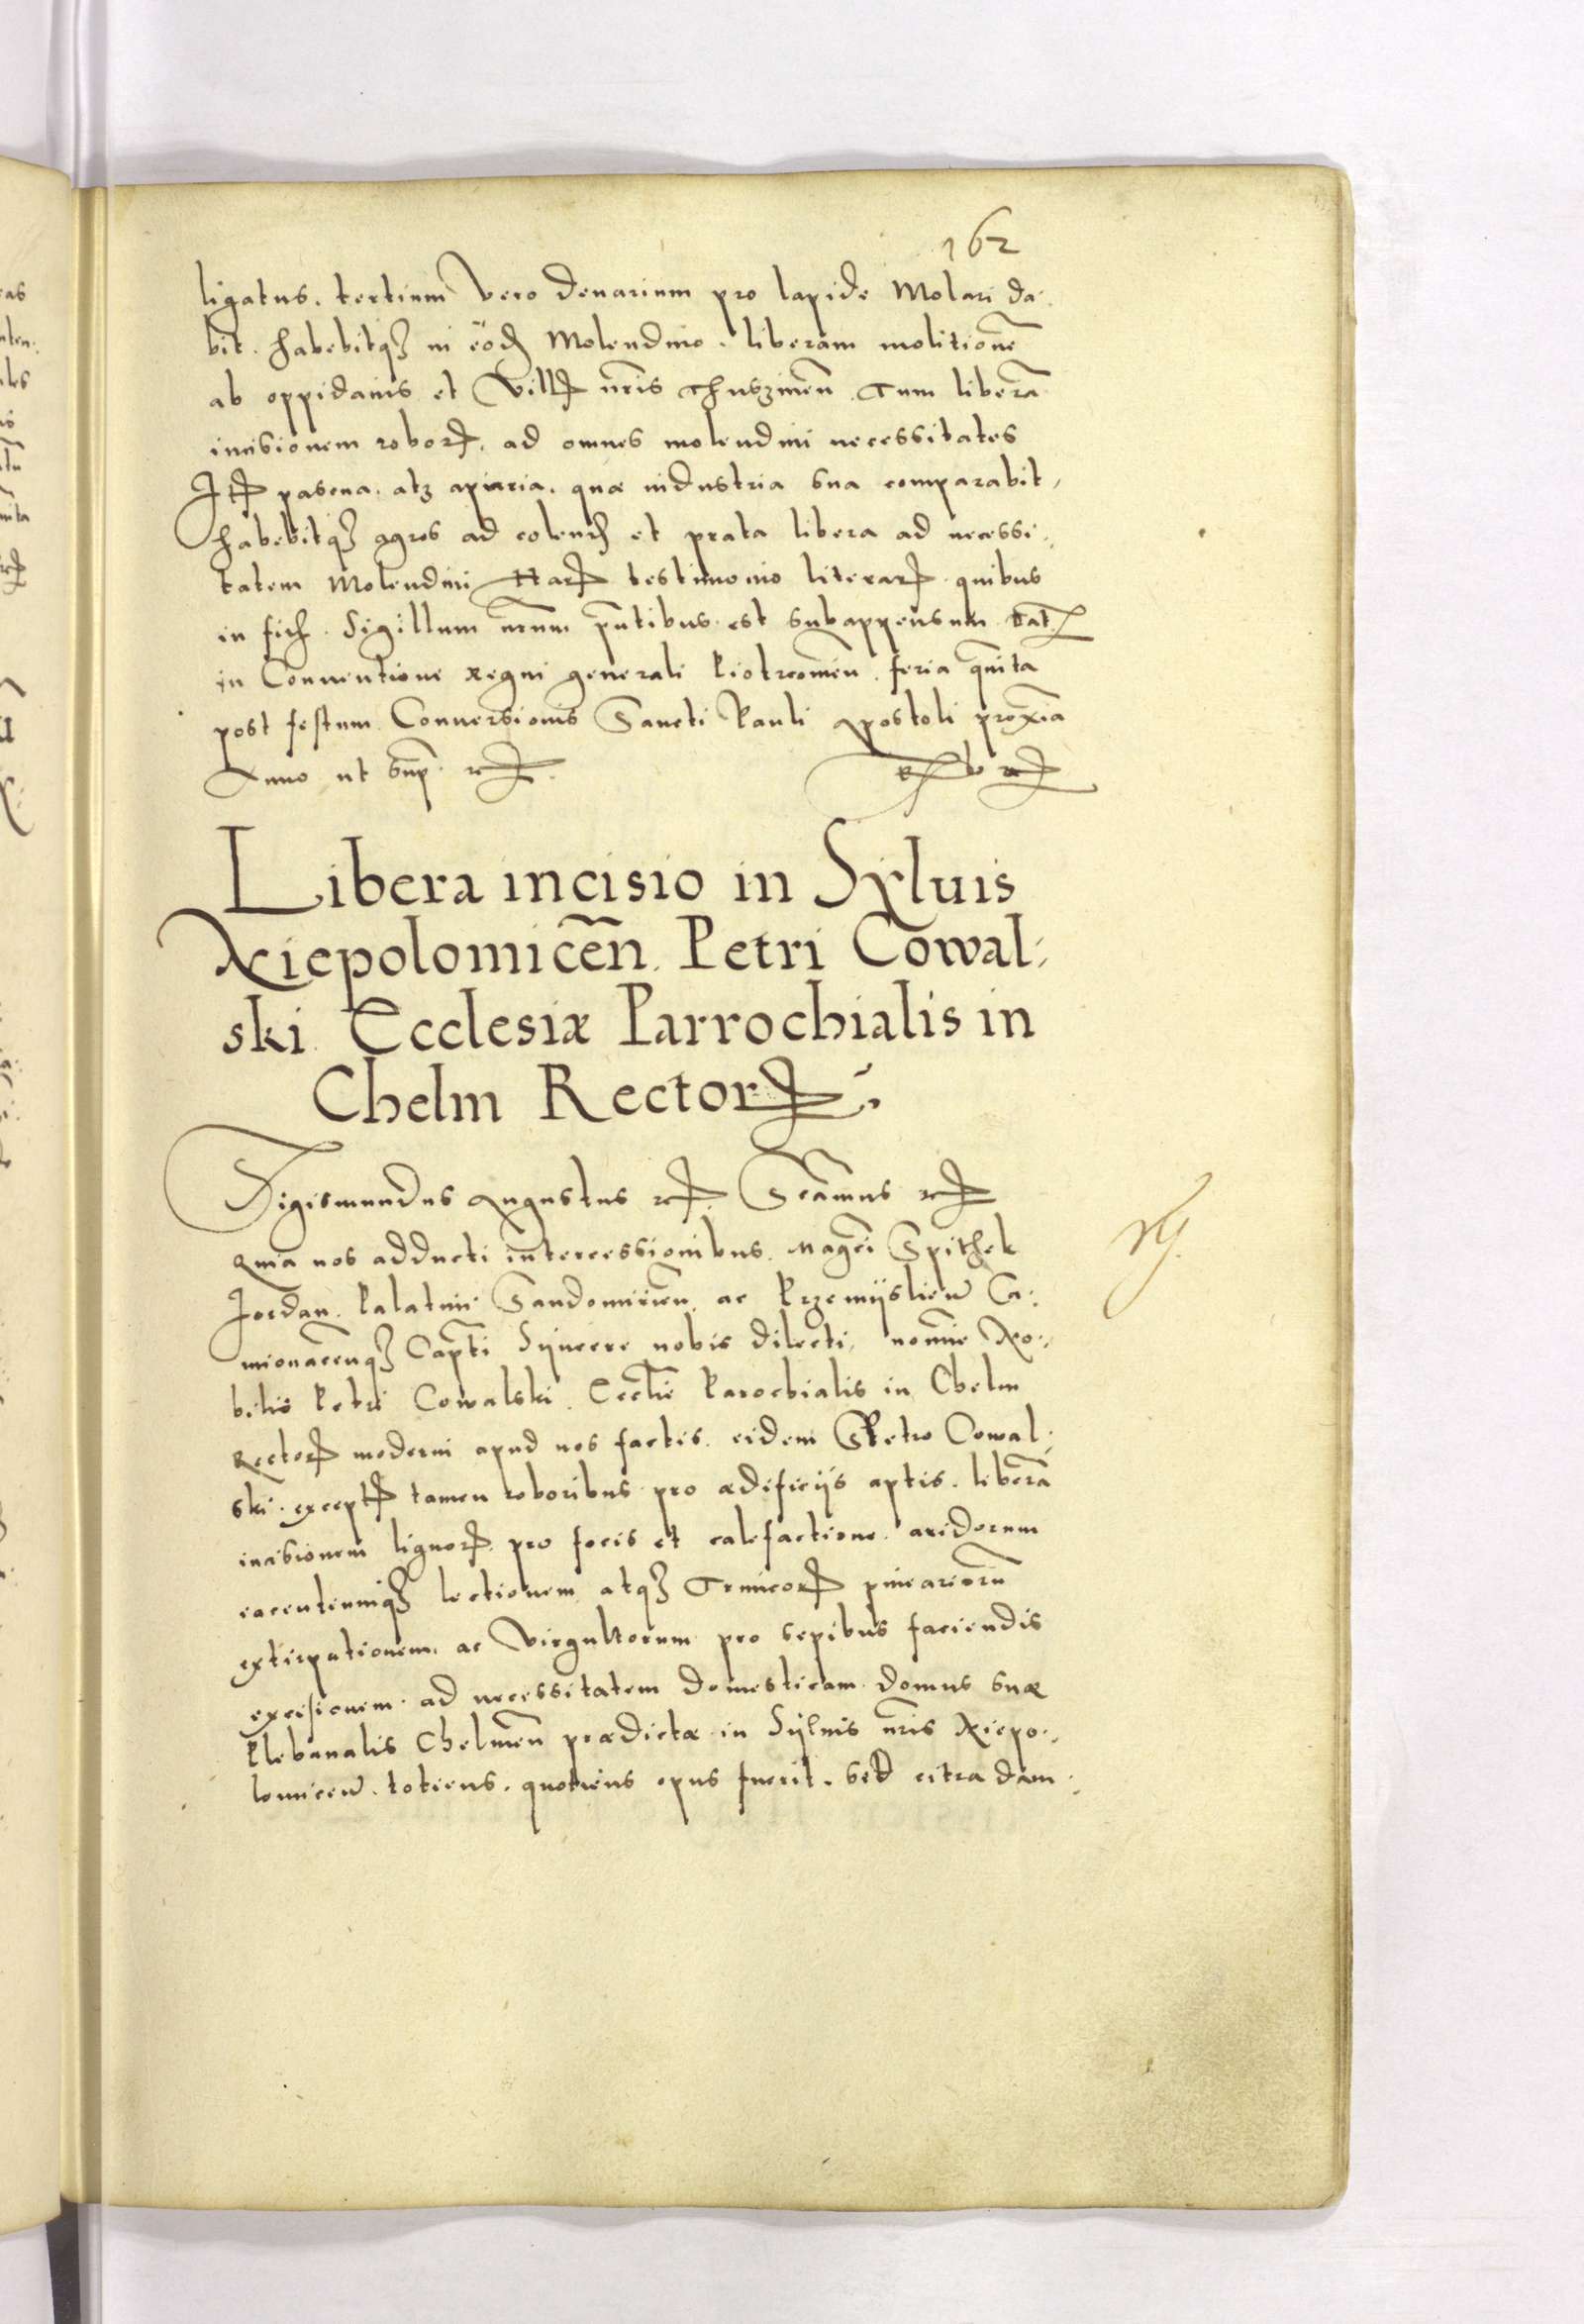 162
ligatus. tertium Vero denarium pro lapide Molari da:
bit. habebitq3 in eod Molendino. liberam molitionē
ab oppidanis et Vill nr̄is Thuszinēn. Cum liberā
incisionem robor. ad omnes molendini necessitates
It pascua. atq3 apiaria. quæ industria sua comparabit,
habebitq3 agros ad colend et prata libera ad necessi:
tatem Molendini Har testimonio literar. quibus
in fid. Sigillum nr̄um pn̄tibus est subappensum Dat
in Conuentione Regni generali Piotrcouiēn. feria quīta
post festum Conuersionis Sancti Pauli Apostoli proxīa
Anno ut sup. rc
Libera incisio in Sÿluis
Niepolomicēn. Petri Cowal:
ski. Ecclesiæ Parrochialis in
Chelm Rector
Sigismundus Augustus rc. Sēamus rc
Quia nos adducti intercessionibus. Magc̄i Spithek
Jordan. Palatini Sandomirien̄. ac Przemÿslien̄ Ca:
mionacenq3 Cap̄ti Sÿncere nobis dilecti, nomīe No:
bilis Petri Cowalski. Eccl̄ie Parochialis in Chelm
Rector moderni apud nos factis. eidem Petro Cowal:
ski. except tamen roboribus pro ædificijs aptis. liberā
incisionem lignor. pro focis et calefactione. aridorum
iacentiumq3 lectionem atq3 Truncor pinearioru
extirpationem. ac Virgultorum pro sepibus faciendis
excisionem. ad necessitatem domesticam domus suæ
Plebanalis Chelmēn prædictæ in Sÿluis nr̄is Niepo:
lomicen̄. totiens. quotiens opus fuerit. sed citra dam: